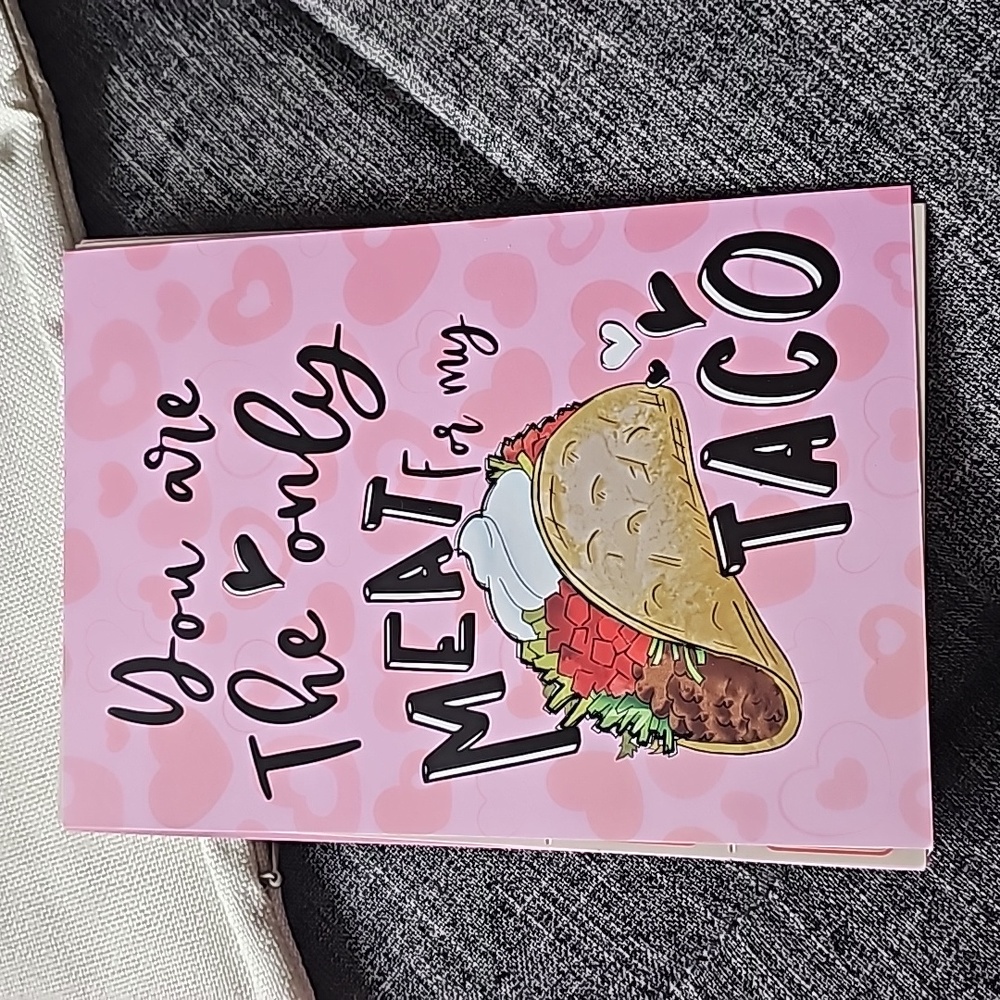 You are
The only
MEAT for my
TACO